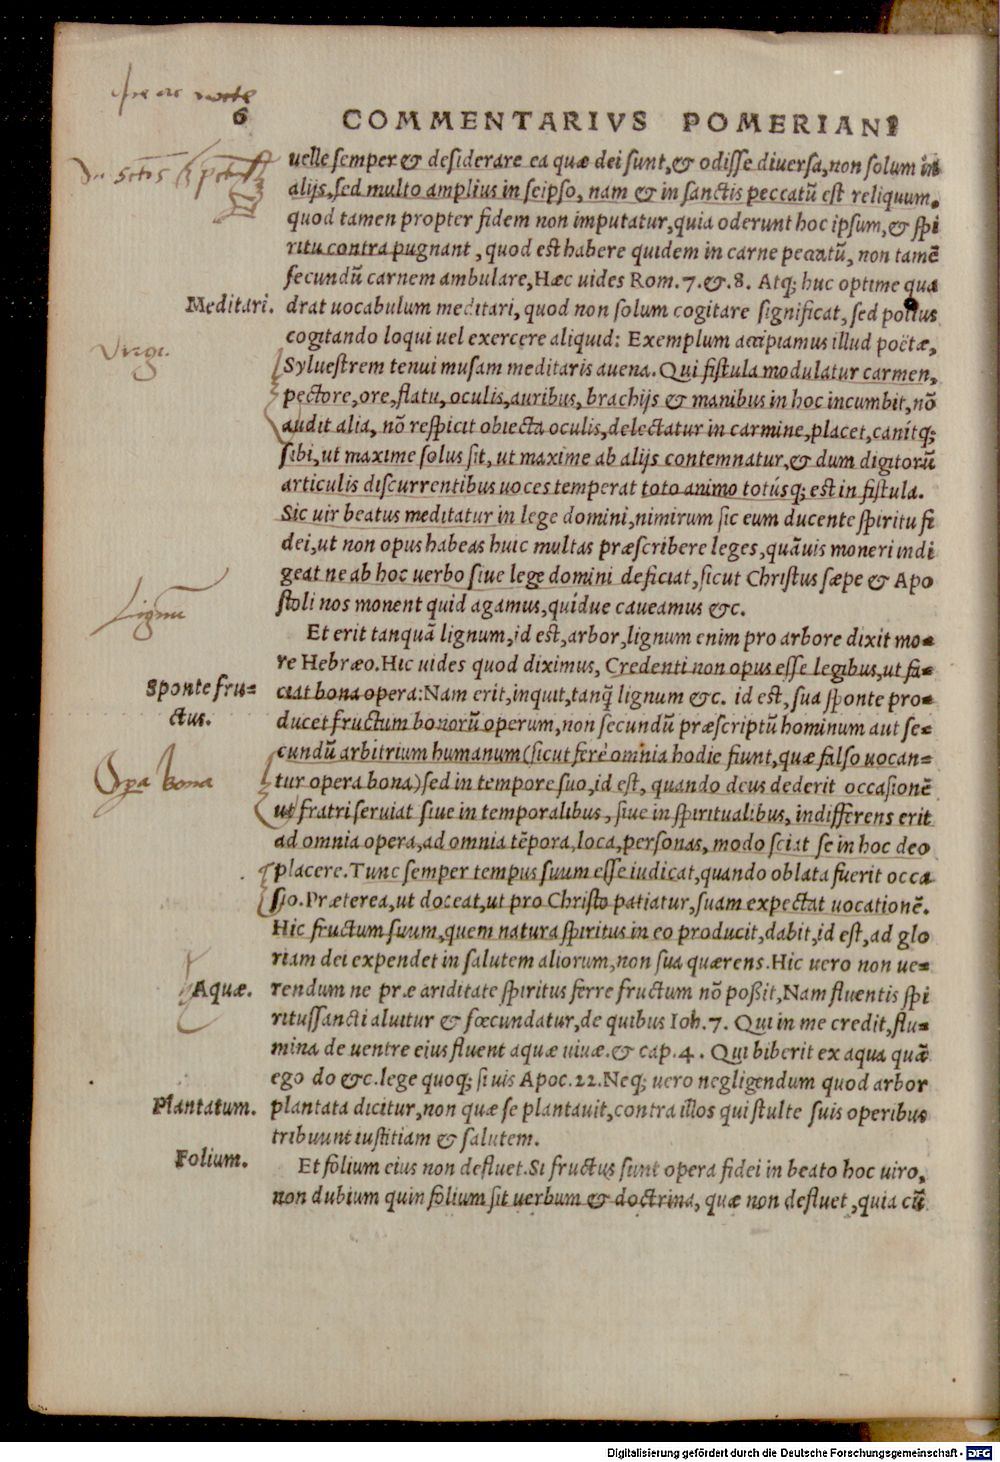 6
COMMENTARIVS POMERIANI
uelle semper & desiderare ea quæ dei sunt, & odisse diuersa, non solum in
alijs, sed multo amplius in seipso, nam & in sanctis peccatũ est reliquum,
quod tamen propter fidem non imputatur, quia oderunt hoc ipsum, & spi
ritu contra pugnant, quod est habere quidem in carne peccatũ, non tamẽ
secundũ carnem ambulare, Hæc uides Rom. 7. &. 8. Atq; huc optime qua
Meditari.
drat uocabulum meditari, quod non solum cogitare significat, sed potius
cogitando loqui uel exercere aliquid: Exemplum accipiamus illud poëtæ,
Virgi.
Syluestrem tenui musam meditaris auena. Qui fistula modulatur carmen,
pectore, ore, flatu, oculis, auribus, brachijs & manibus in hoc incumbit, nõ
audit alia, nõ respicit obiecta oculis, delectatur in carmine, placet, canitq;
sibi, ut maxime solus sit, ut maxime ab alijs contemnatur, & dum digitorũ
articulis discurrentibus uoces temperat toto animo totúsq; est in fistula.
Sic uir beatus meditatur in lege domini, nimirum sic eum ducente spiritu fi
dei, ut non opus habeas huic multas præscribere leges, quãuis moneri indi
geat ne ab hoc uerbo siue lege domini deficiat, sicut Christus sæpe & Apo
stoli nos monent quid agamus, quidue caueamus &c.
Lignũ
Et erit tanquã lignum, id est, arbor, lignum enim pro arbore dixit mo=
re Hebræo. Hic uides quod diximus, Credenti non opus esse legibus, ut fa=
Sponte fru=
ctus.
ciat bona opera: Nam erit, inquit, tanq̃ lignum &c. id est, sua sponte pro=
ducet fructum bonorũ operum, non secundũ præscriptũ hominum aut se=
cundũ arbitrium humanum (sicut ferè omnia hodie fiunt, quæ falso uocan=
Opa bona
tur opera bona) sed in tempore suo, id est, quando deus dederit occasionẽ
ut fratri seruiat siue in temporalibus, siue in spiritualibus, indifferens erit
ad omnia opera, ad omnia tẽpora, loca, personas, modo sciat se in hoc deo
placere. Tunc semper tempus suum esse iudicat, quando oblata fuerit occa
sio. Præterea, ut doceat, ut pro Christo patiatur, suam expectat uocationẽ.
Hic fructum suum, quem natura spiritus in eo producit, dabit, id est, ad glo
riam dei expendet in salutem aliorum, non sua quærens. Hic uero non ue=
Aquæ.
rendum ne præ ariditate spiritus ferre fructum nõ poßit, Nam fluentis spi
ritussancti aluitur & fœcundatur, de quibus Ioh. 7. Qui in me credit, flu=
mina de uentre eius fluent aquæ uiuæ. & cap. 4. Qui biberit ex aqua quã
ego do &c. lege quoq; si uis Apoc. 22. Neq; uero negligendum quod arbor
Plantatum.
plantata dicitur, non quæ se plantauit, contra illos qui stulte suis operibus
tribuunt iustitiam & salutem.
Folium.
Et folium eius non defluet. Si fructus sunt opera fidei in beato hoc uiro,
non dubium quin folium sit uerbum & doctrina, quæ non defluet, quia cũ
Digitalisierung gefördert durch die Deutsche Forschungsgemeinschaft - DFG